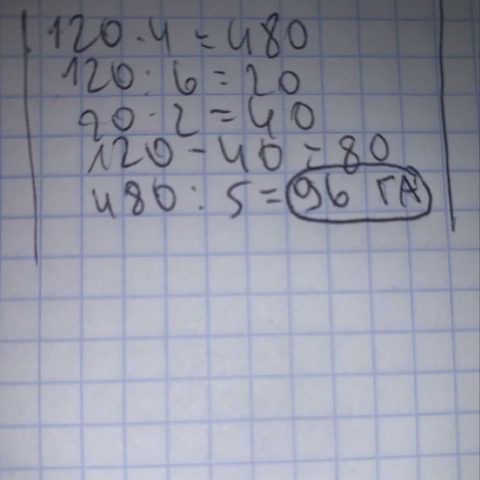 120·4=480
120:6=20
20·2=40
120-40=80
480:5=96 ГА